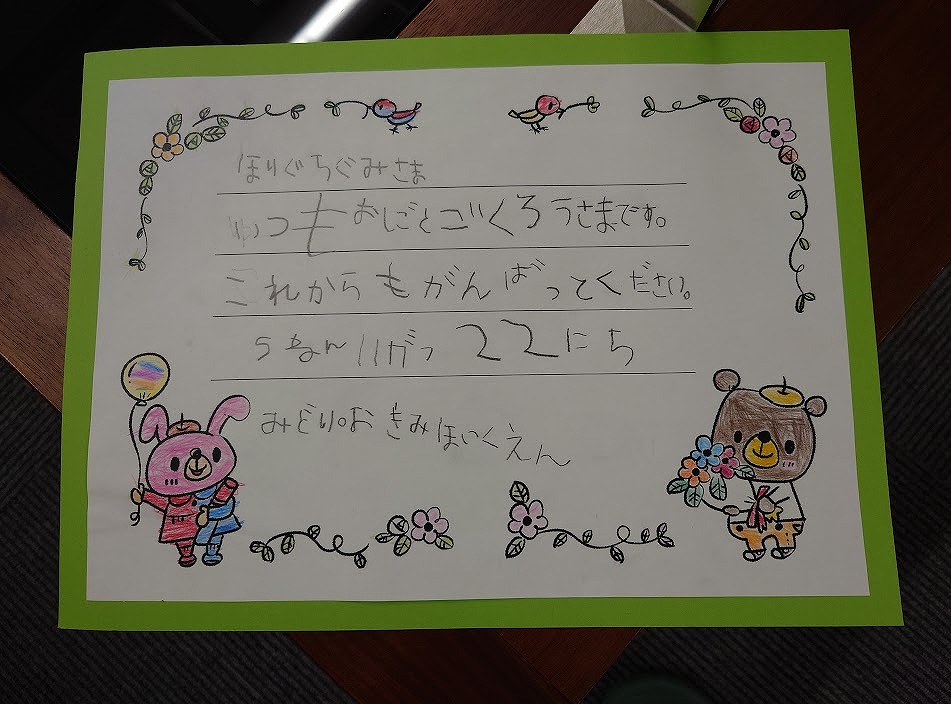 ほりぐちぐみさま
いつもおしごとごくろうさまです。
これからもがんばってください。
5ねん11がつ22にち
みどりのおきみほいくえん